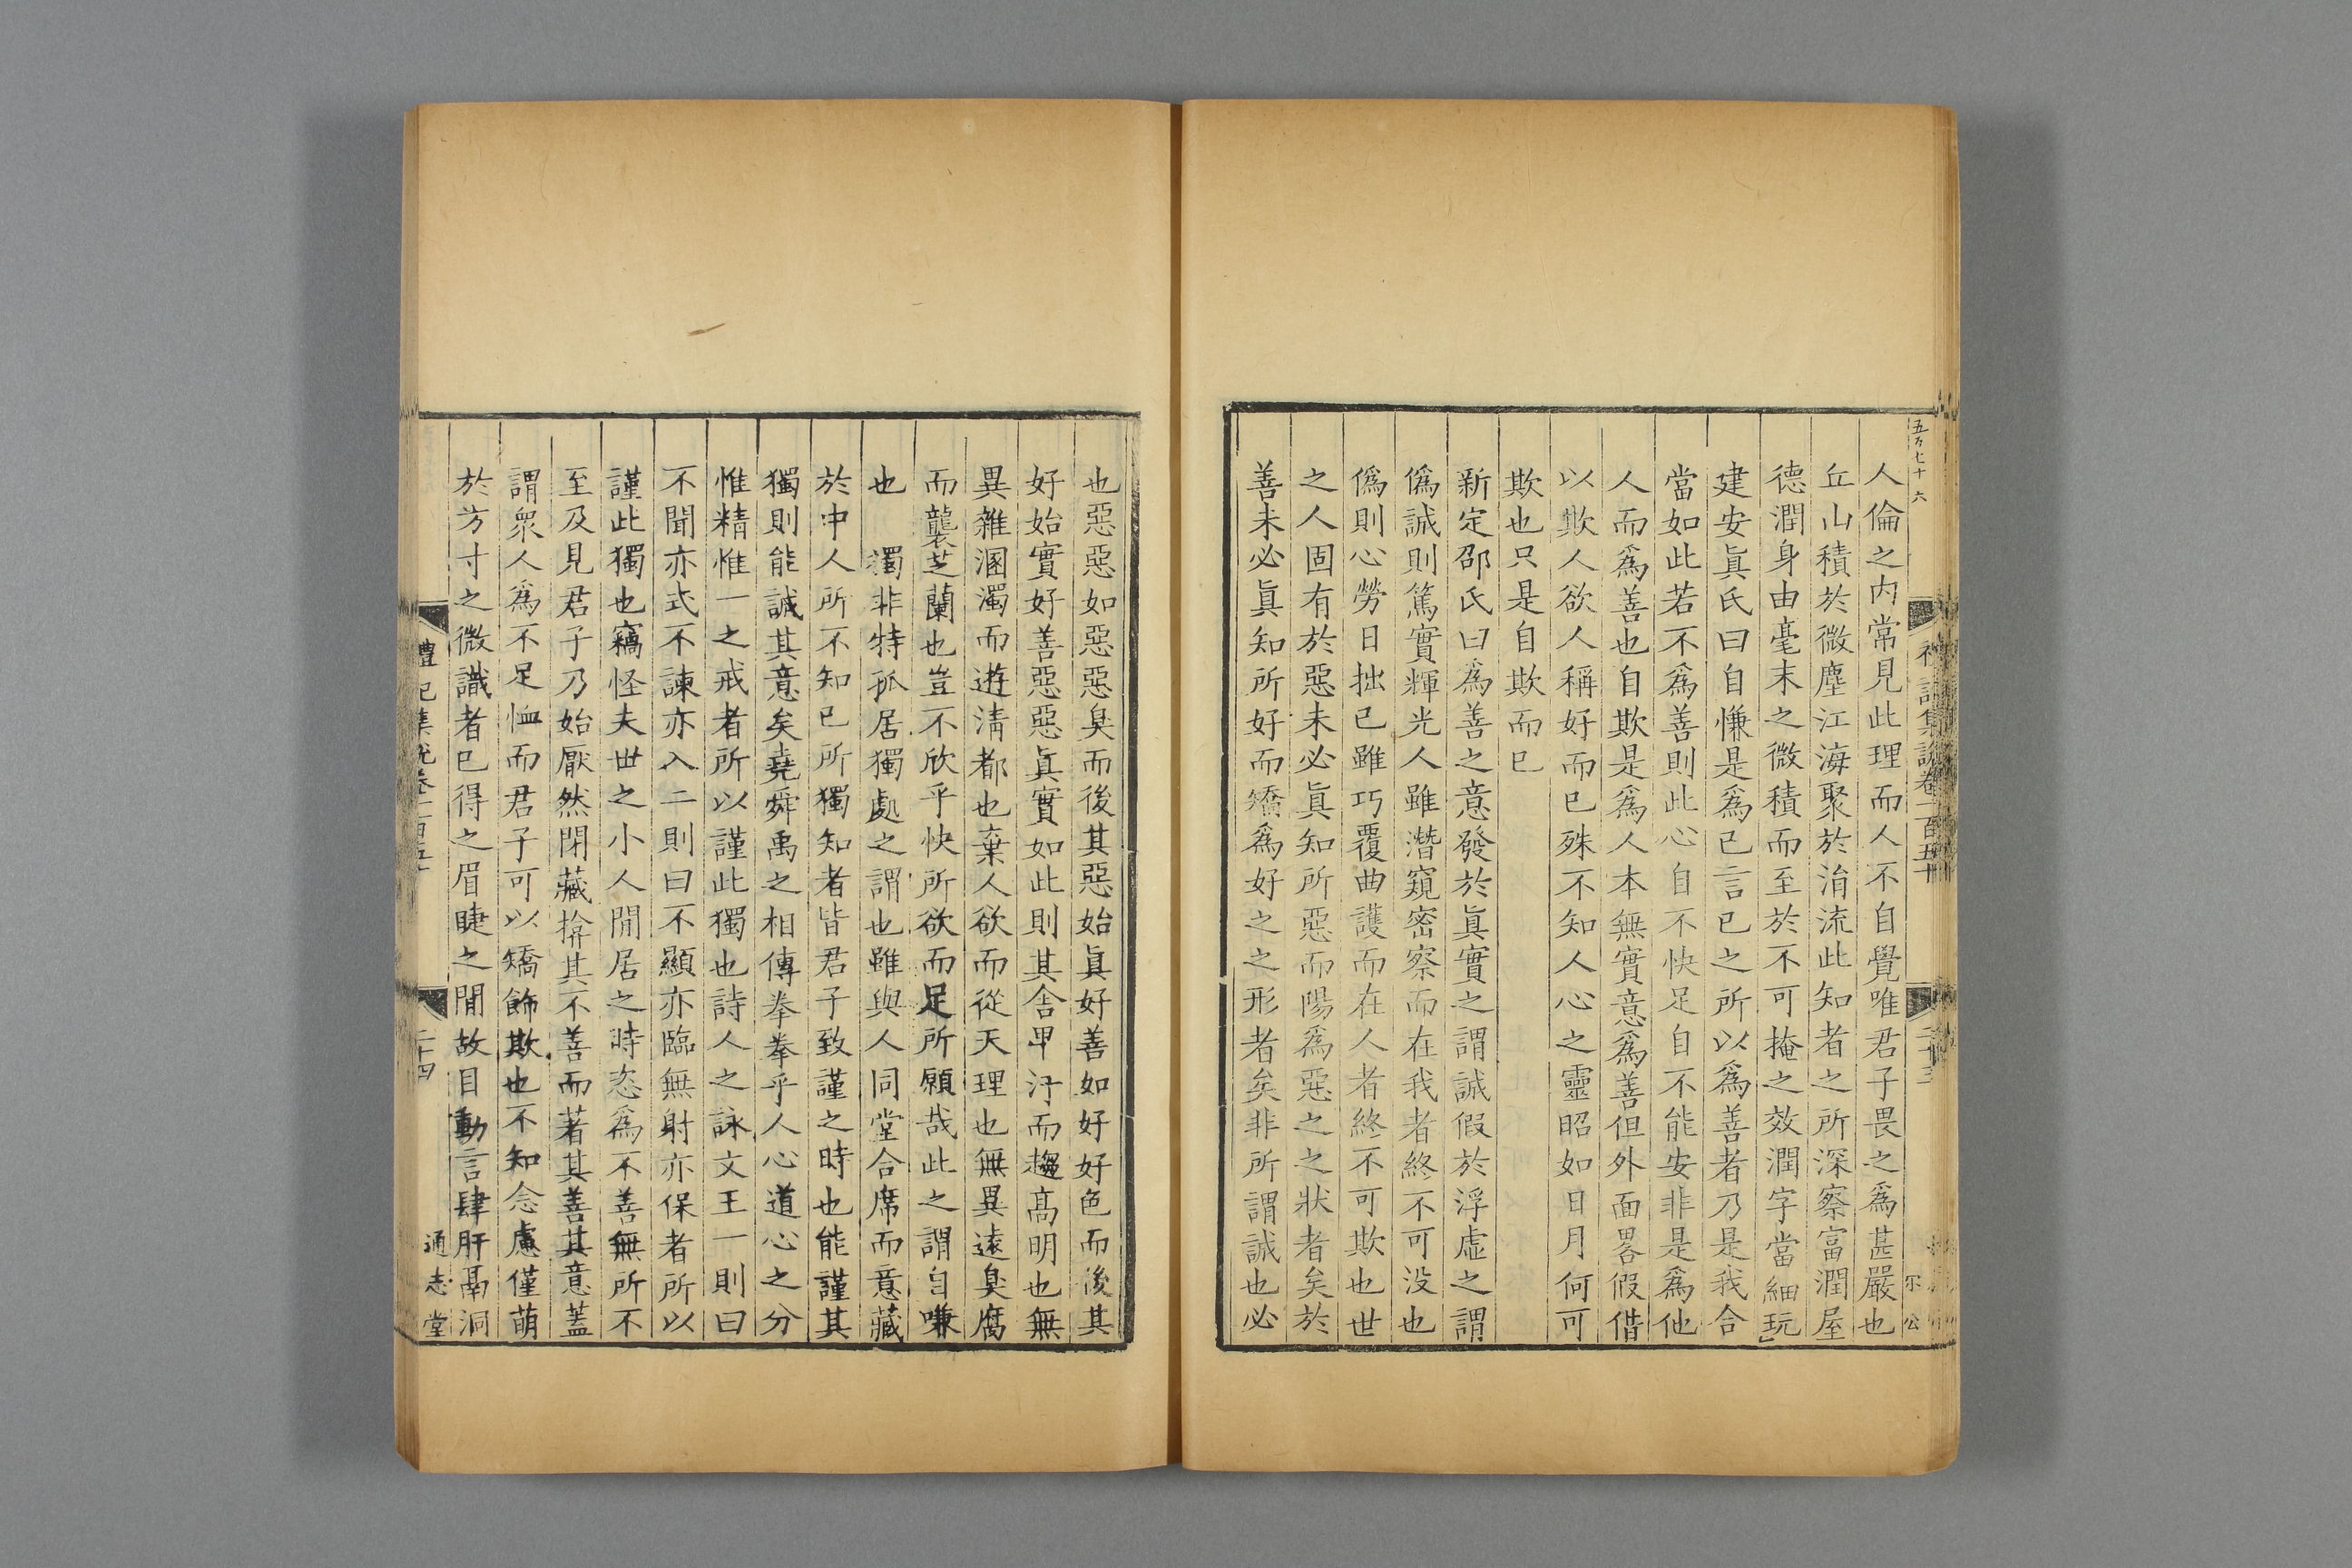 人倫之内常見此理而人不自覺唯君子畏之爲甚嚴也
丘山積於微塵江海聚於涓流此知者之所深察富潤屋
德潤身由毫末之微積而至於不可掩之效潤字當細玩
建安眞氏曰自慊是爲已言已之所以爲善者乃是我合
當如此若不爲善則此心自不快足自不能安非是爲他
人而爲善也自欺是爲人本無實意爲善但外面畧假借
以欺人欲人稱好而已殊不知人心之靈昭如日月何可
欺也只是自欺而已
新定邵氏曰爲善之意發於眞實之謂誠假於浮虛之謂
僞誠則篤實輝光人雖潛窺密察而在我者終不可没也
僞則心勞日拙已雖巧覆曲護而在人者終不可欺也世
之人固有於惡未必眞知所惡而陽爲惡之之狀者矣於
善未必眞知所好而矯爲好之之形者矣非所謂誠也必
也惡惡如惡惡臭而後其惡始眞好善如好好色而後其
好始實好善惡惡眞實如此則其舍卑汙而趨高明也無
異雜溷濁而遊清都也棄人欲而從天理也無異遠臭腐
而襲芝蘭也豈不欣乎快所欲而足所願哉此之謂自慊
也 獨非特孤居獨處之謂也雖與人同堂合席而意藏
於中人所不知已所獨知者皆君子致謹之時也能謹其
獨則能誠其意矣堯舜禹之相傳拳拳乎人心道心之分
惟精惟一之戒者所以謹此獨也詩人之詠文王一則曰
不聞亦式不諫亦入二則曰不顯亦臨無射亦保者所以
謹此獨也竊怪夫世之小人閒居之時恣爲不善無所不
至及見君子乃始厭然閉藏揜其不善而著其善其意蓋
謂衆人爲不足恤而君子可以矯飾欺也不知念慮僅萌
於方寸之微識者已得之眉睫之閒故目動言肆肝鬲洞
禮記集說卷一百五十
二十四
通志堂